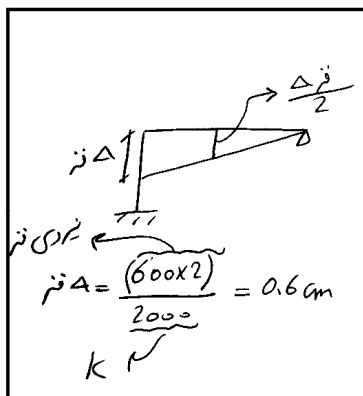 Δ فنر
2
Δ فنر
نیروی فنر
Δ فنر = (600×2) / 2000 = 0.6 cm
K